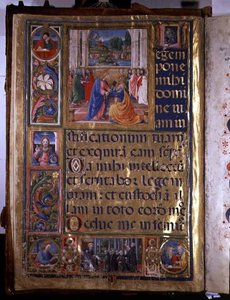 egem
pone
mihi
domi
ne ui
am iu
stificationum tuarum
et exquiram eam semper
Da mihi intellectum
et scrutabor legem
tuam: et custodiam il
lam in toto corde meo
Deduc me in semita